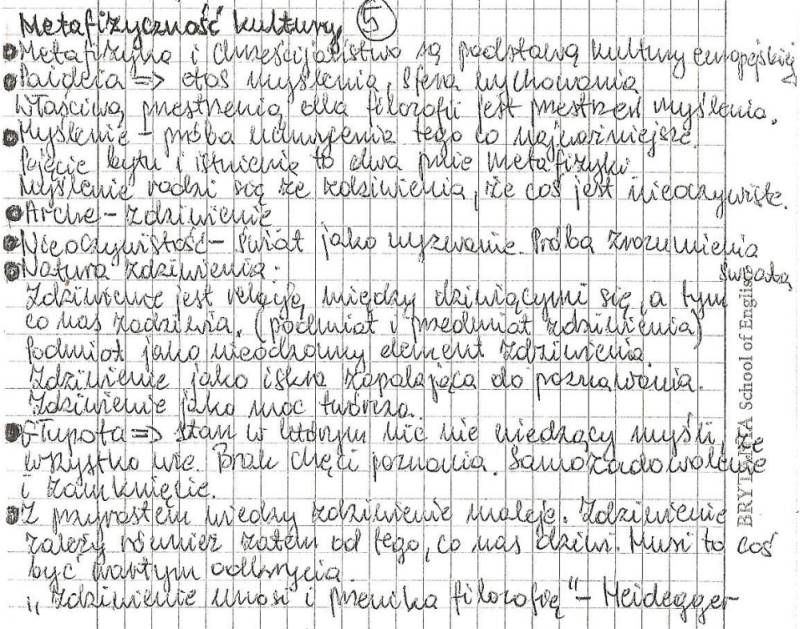 Metafizyczność kultury 5
Metafizyka i chrześcijaństwo są podstawą kultury europejskiej
Paideia => etos myślenia, sfera wychowania
Właściwą przestrzenią dla filozofii jest przestrzeń myślenia.
Myślenie - próba uchwycenia tego co najważniejsze.
Pojęcie bytu i istnienie to dwa pnie metafizyki
Myślenie rodzi się ze zdziwienia, że coś jest nieoczywiste.
Arche - zdziwienie
Nieoczywistość - świat jako wyzwanie. Próba zrozumienia świata
Natura zdziwienia.
Zdziwienie jest relacją między dziwiącymi się, a tym
co nas zadziwia. (podmiot i przedmiot zdziwienia)
Podmiot jako nieodzowny element zdziwienia
Zdziwienie jako iskra zapalająca do poznawania.
Zdziwienie jako moc twórcza.
Głupota => stan w którym nic nie wiedzący myśli, że
wszystko wie. Brak chęci poznania. Samozadowolenie
i zamknięcie.
Z przyrostem wiedzy zdziwienie maleje. Zdziwienie
zależy również zatem od tego, co nas dziwi. Musi to coś
być wartym odkrycia.
"Zdziwienie unosi i przenika filozofię" - Heidegger
BRYTANIA School of English